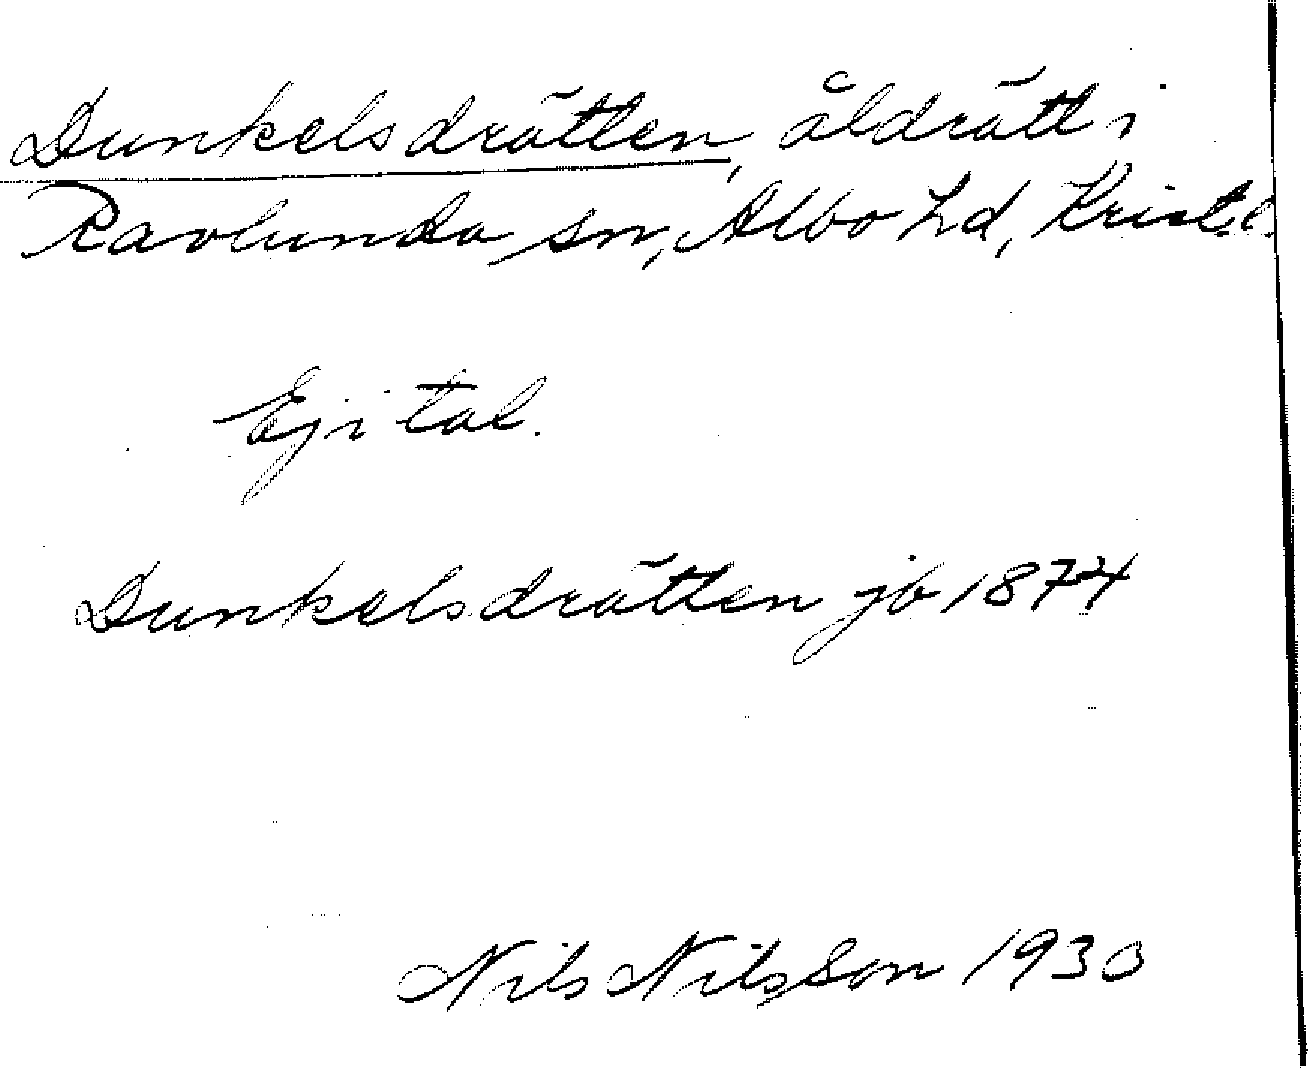 Dunkelsdrätten, åldrätt i
Ravlunda sn, Albo hd, Krist.l.
Ej i tal.
Dunkelsdrätten jb 1874
Nils Nilsson 1930